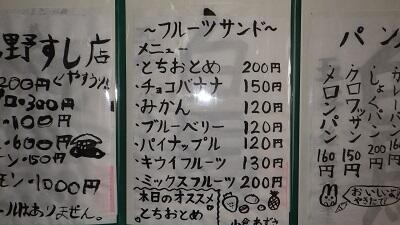 野すし店
200円
くやすうり
300円
100円
600円
150円
1000円
ールはありません。
～フルーツサンド～
メニュー
とちおとめ 200円
チョコバナナ 150円
みかん 120円
ブルーベリー 120円
パイナップル 120円
キウイフルーツ 130円
ミックスフルーツ 200円
本日のオススメ
とちおとめ
小倉あずき
パン
メロンパン 160円
クロワッサン 150円
しょくパン 200円
カレー
おいしいよ
やきたて